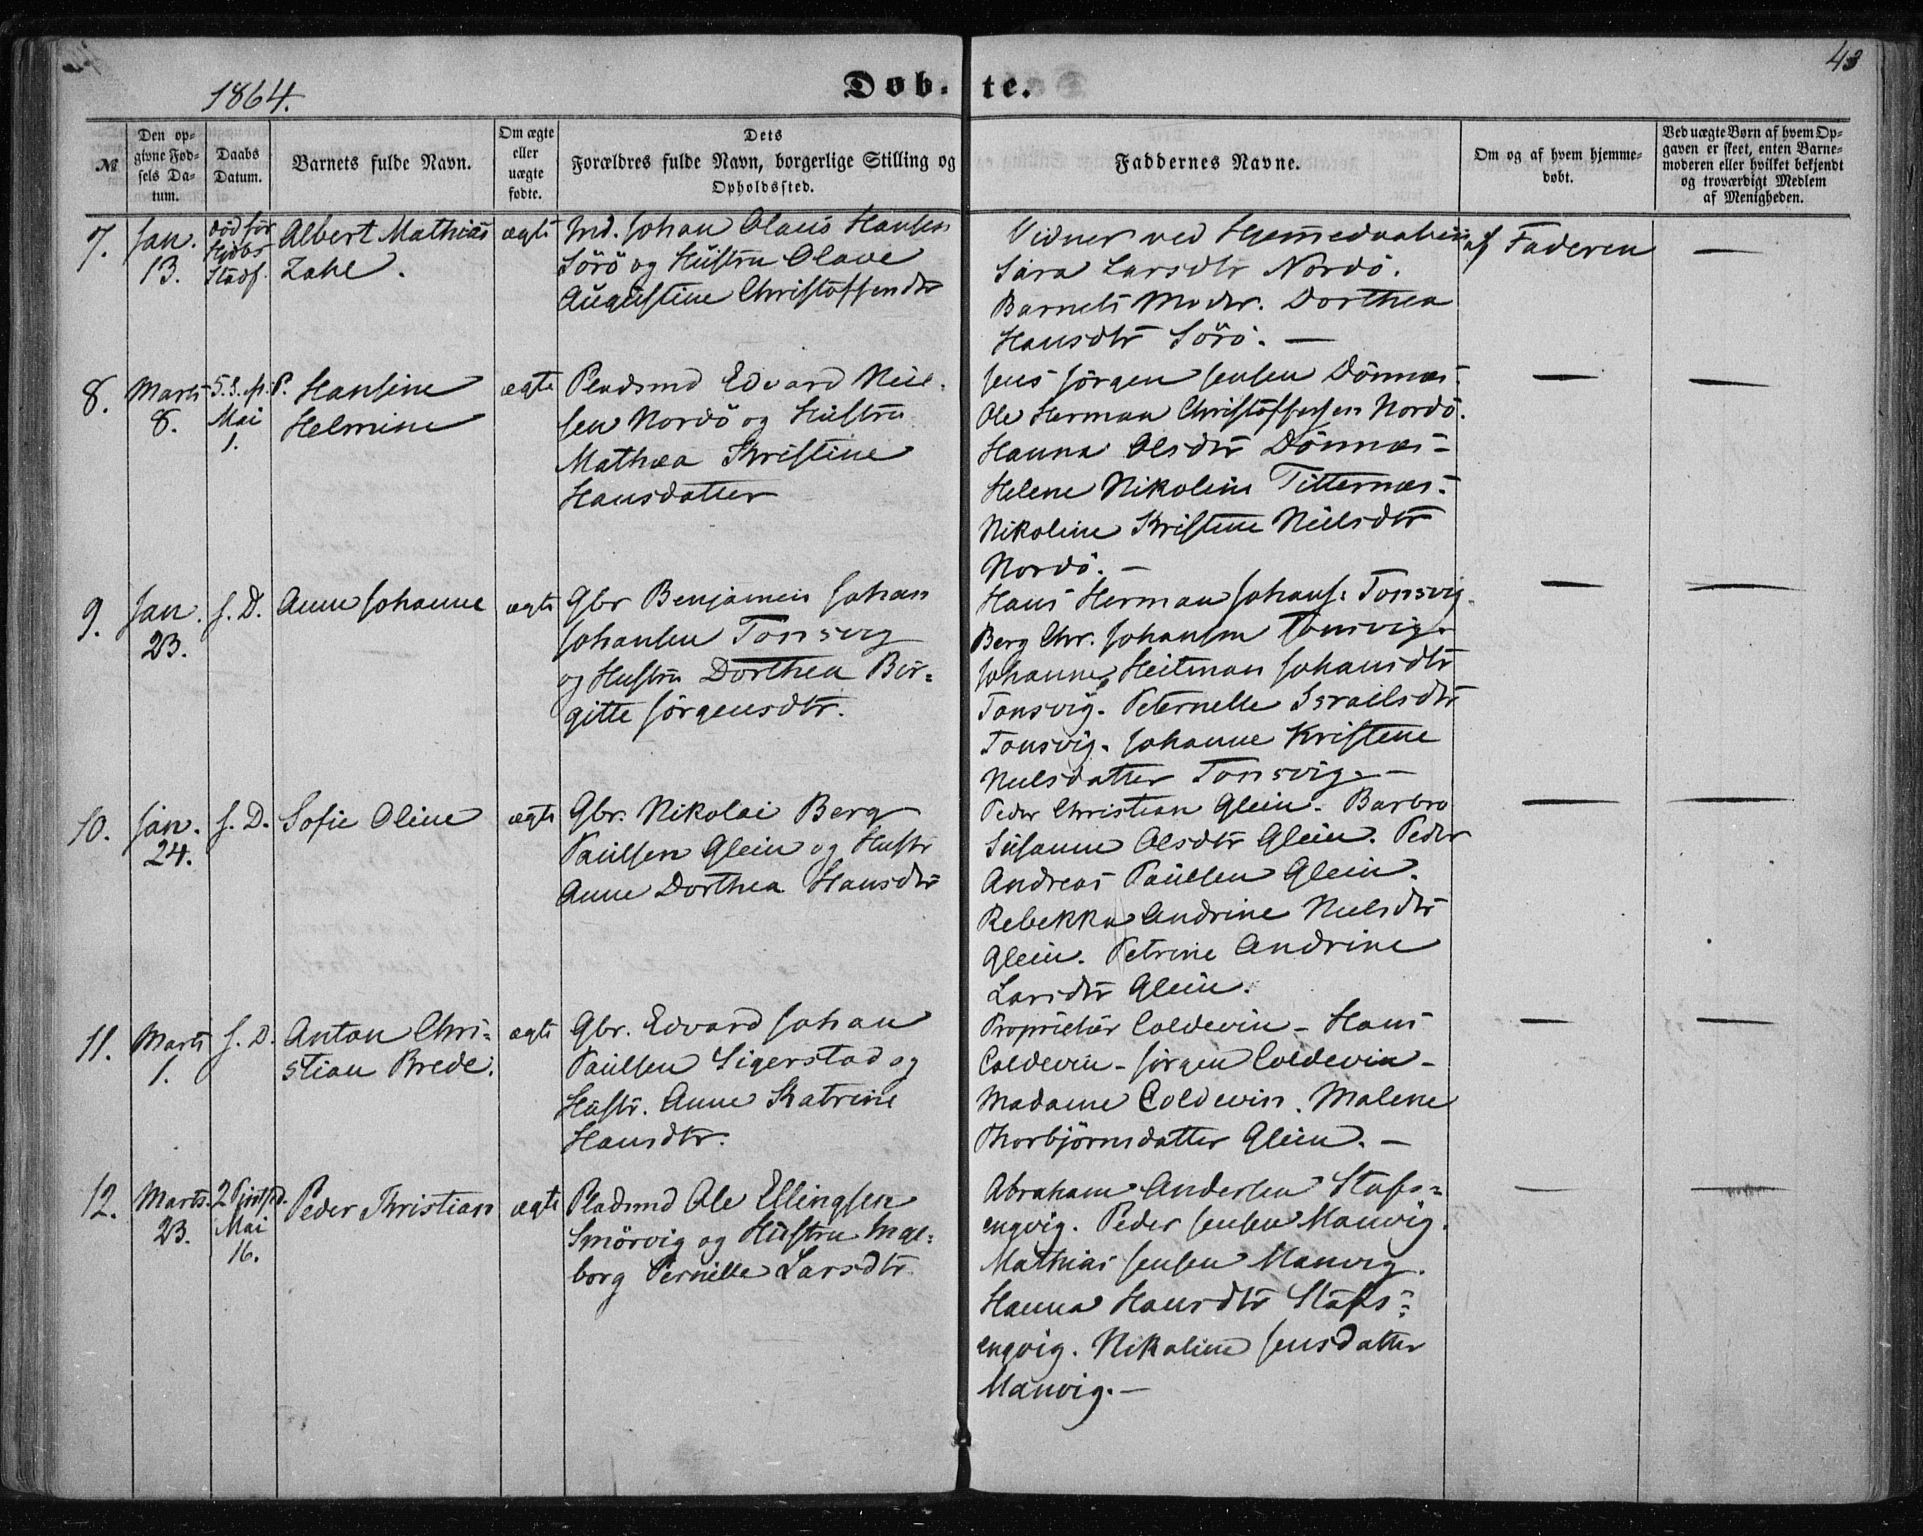 1864.
Døb-te.
43
№
Den op-
givne Fød-
sels Da-
tum.
Daabs
Datum.
Barnets fulde Navn.
Om ægte
eller
uægte
fødte.
Dets
Forældres fulde Navn, borgerlige Stilling og
Opholdssted.
Faddernes Navne.
Om og af hvem hjemme-
døbt.
Ved uægte Børn af hvem Op-
gaven er skeet, enten Barne-
moderen eller hvilket bekjendt
og troværdigt Medlem
af Menigheden.
7.
Jan.
13.
død før
Stadf.
Albert Mathias
Zahl.
ægte
Ind. Johan Olaus Hansen
Sörö og Hustru Olave
Augustine Christoffersdtr
Vidner ved Hjemmedaaben
Sara Larsdtr Nordö.
Barnets Moder. Dorthea
Hansdtr Sörö. —
af Faderen
—
8.
Marts
8.
5. S. e. P.
Mai
1.
Hansine
Helmine
ægte
Pladsmd Edvard Niel-
sen Nordö og Hustru
Mathea Kristine
Hansdatter
Jens Jörgen Jensen Dönnes.
Ole Herman Christoffersen Nordö.
Hanna Olsdtr Dönnes-
Helene Nikoline Titternes.
Nikoline Kristine Nielsdtr
Nordö. —
—
—
9.
Jan.
23.
s. D.
Anne Johanne
ægte
Gbr Benjamin Johan
Johansen Tonsvig
og Hustru Dorthea Bir-
gitte Jörgensdtr.
Hans Herman Johans. Tonsvig.
Berg Chr. Johansen Tonsvig.
Johanne Heitman Johansdtr
Tonsvig. Peternelle Israelsdtr
Tonsvig. Johanne Kristine
Nielsdatter Tonsvig. —
—
—
10.
Jan.
24.
s. D.
Sofie Oline
ægte
Gbr. Nikolai Berg
Paulsen Glein og Hustr
Anne Dorthea Hansdtr
Peder Christian Glein. Barbro
Susanne Olsdtr Glein. Peder
Andreas Paulsen Glein.
Rebekka Andrine Nielsdtr
Glein. Petrine Andrine
Larsdtr Glein.
—
—
11.
Marts
1.
s. D.
Anton Chri-
stian Brede.
ægte
Gbr. Edvard Johan
Paulsen Sigerstad og
Hustr. Anne Katrine
Hansdtr.
Proprietær Coldevin - Hans
Coldevin - Jörgen Coldevin -
Madame Coldevin. Malene
Thorbjörnsdatter Glein. —
—
—
12.
Marts
23.
2 Pintsed.
Mai
16.
Peder Kristian
ægte
Pladsmd Ole Ellingsen
Smörvig og Hustru Inge-
borg Pernille Larsdtr
Abraham Andersen Stafs-
engvig. Peder Jensen Manvig.
Mathias Jensen Manvig.
Hanna Hansdtr Stafs-
engvig. Nikoline Jensdatter
Manvig. —
—
—